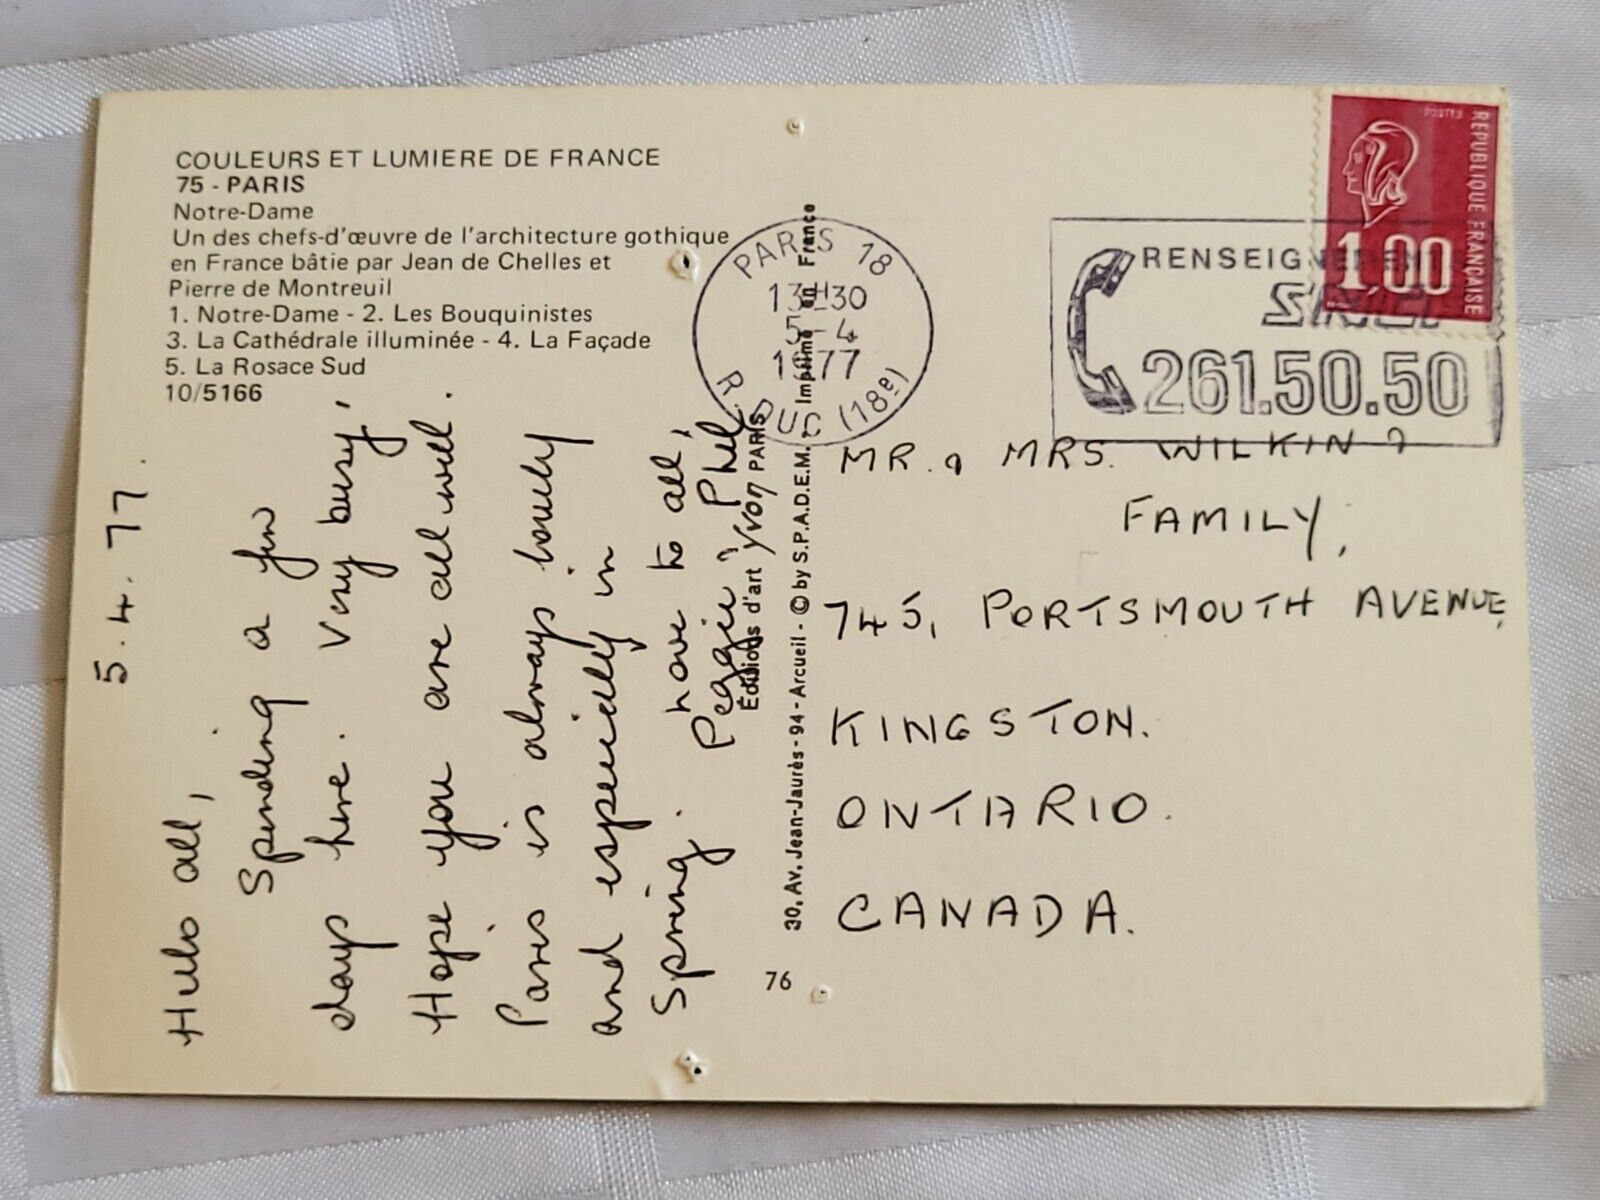 COULEURS ET LUMIERE DE FRANCE
75 - PARIS
Notre-Dame
Un des chefs-d'œuvre de l'architecture gothique
en France bâtie par Jean de Chelles et
Pierre de Montreuil
1. Notre-Dame - 2. Les Bouquinistes
3. La Cathédrale illuminée - 4. La Façade
5. La Rosace Sud
10/5166
5.4.77.
Hello all,
Spending a few
days here. Very busy,
Hope you are all well.
Paris is always lovely
and especially in
Spring. Love to all,
Peggie & Phil.
Éditions d'art Yvon PARIS
30, Av. Jean-Jaurès - 94 - Arcueil - © by S.P.A.D.E.M. - Imprimé en France
76
PARIS 18
13H30
5-4
1977
R. DUC (18e)
RENSEIGNEMENTS
261.50.50
POSTES
REPUBLIQUE FRANÇAISE
1,00
MR. & MRS. WILKIN &
FAMILY,
745, PORTSMOUTH AVENUE,
KINGSTON.
ONTARIO.
CANADA.